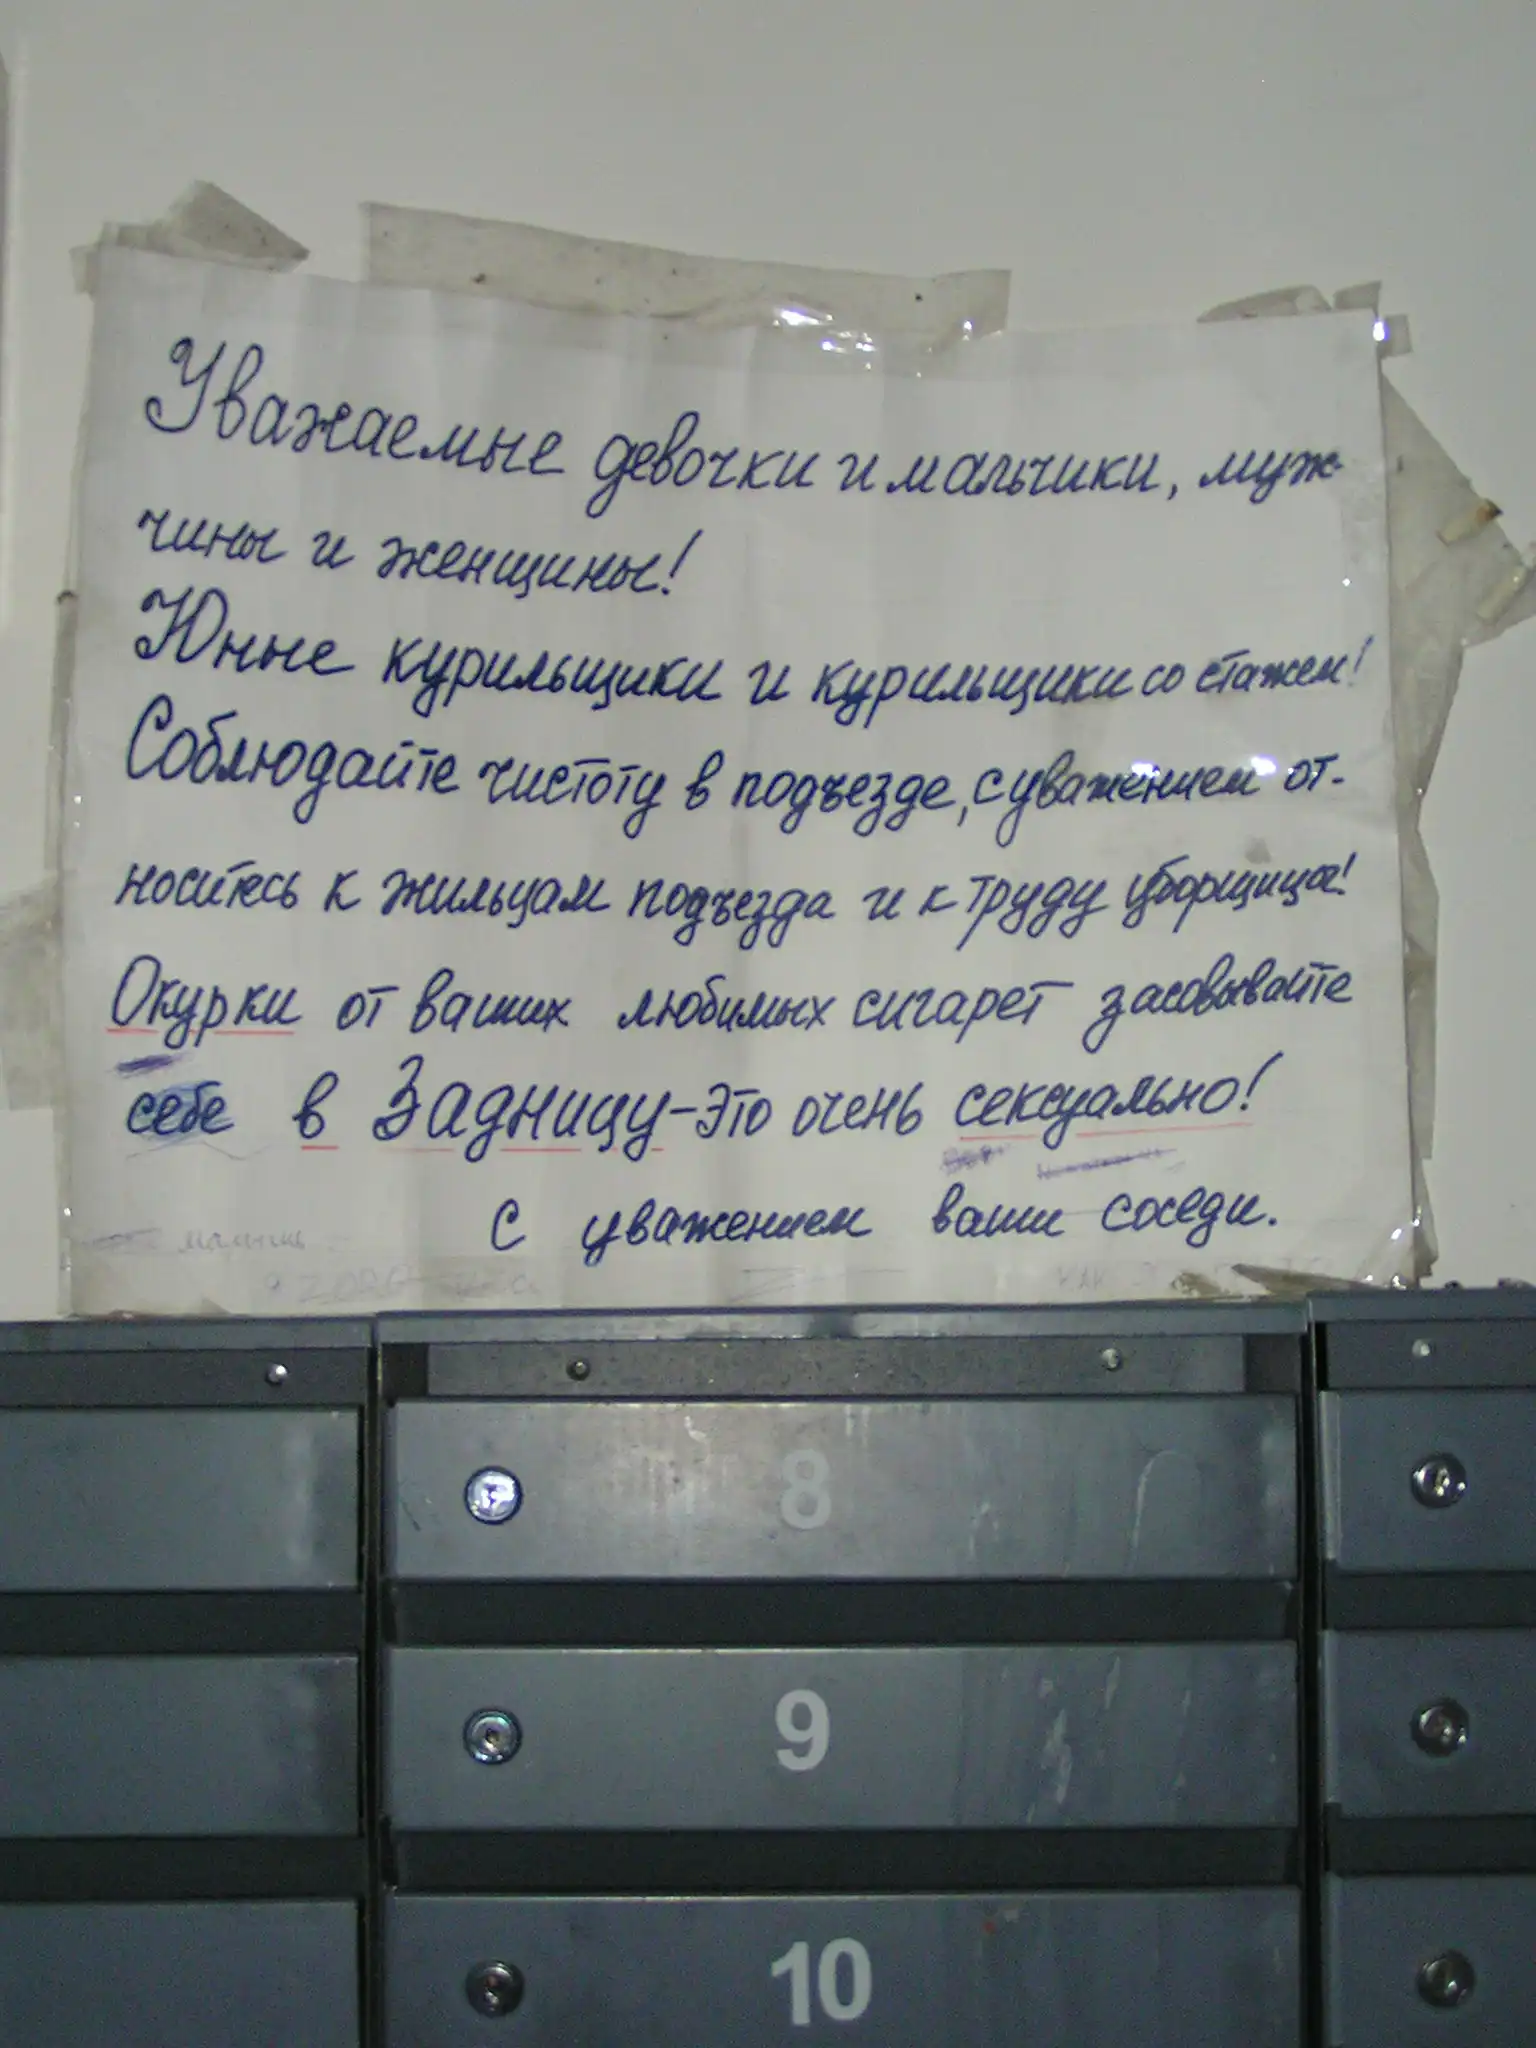 Уважаемые девочки и мальчики, муж-
чины и женщины!
Юные курильщики и курильщики со стажем!
Соблюдайте чистоту в подъезде, с уважением от-
носитесь к жильцам подъезда и к труду уборщица!
Окурки от ваших любимых сигарет засовывайте
себе в Задницу - это очень сексуально!
С уважением ваши соседи.
8
9
10